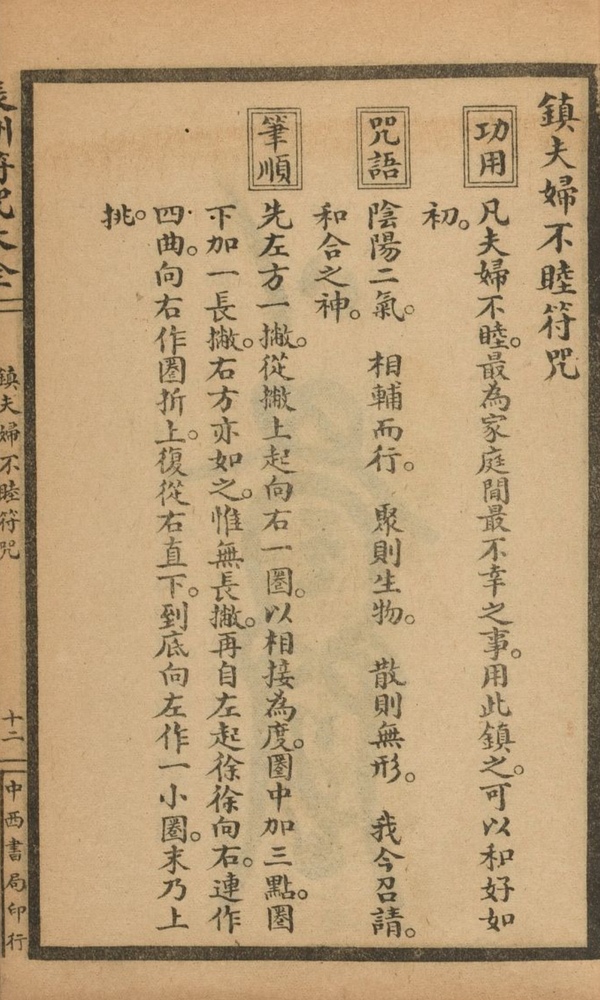 鎮夫婦不睦符咒
功用
凡夫婦不睦。最為家庭間最不幸之事。用此鎮之。可以和好如
初。
咒語
陰陽二氣。 相輔而行。 聚則生物。 散則無形。 我今召請。
和合之神。
筆順
先左方一撇。從撇上起向右一圈。以相接為度。圈中加三點。圈
下加一長撇。右方亦如之。惟無長撇。再自左起徐徐向右。連作
四曲。向右作圈折上。復從右直下。到底向左作一小圈。末乃上
挑。
符咒大全
鎮夫婦不睦符咒
十二
中西書局印行